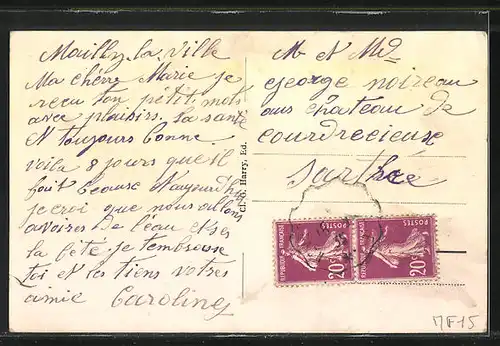 Mailly la ville
Ma chère Marie je
recu ton petit mots
avec plaisirs. la santé
et toujours bonne
voila 8 jours que il
fait beause Naujourdhui
je croi que nous allons
avoires De l'eau et ses
la bete je tembrasse
toi et les tiens votres
amie Caroline
Cl. G. Harry, Ed.
Mr et Md
george noireau
aus chateau de
courdrecieuse
Sarthe
POSTES
REPUBLIQUE FRANÇAISE
20c
POSTES
REPUBLIQUE FRANÇAISE
20c
MF15